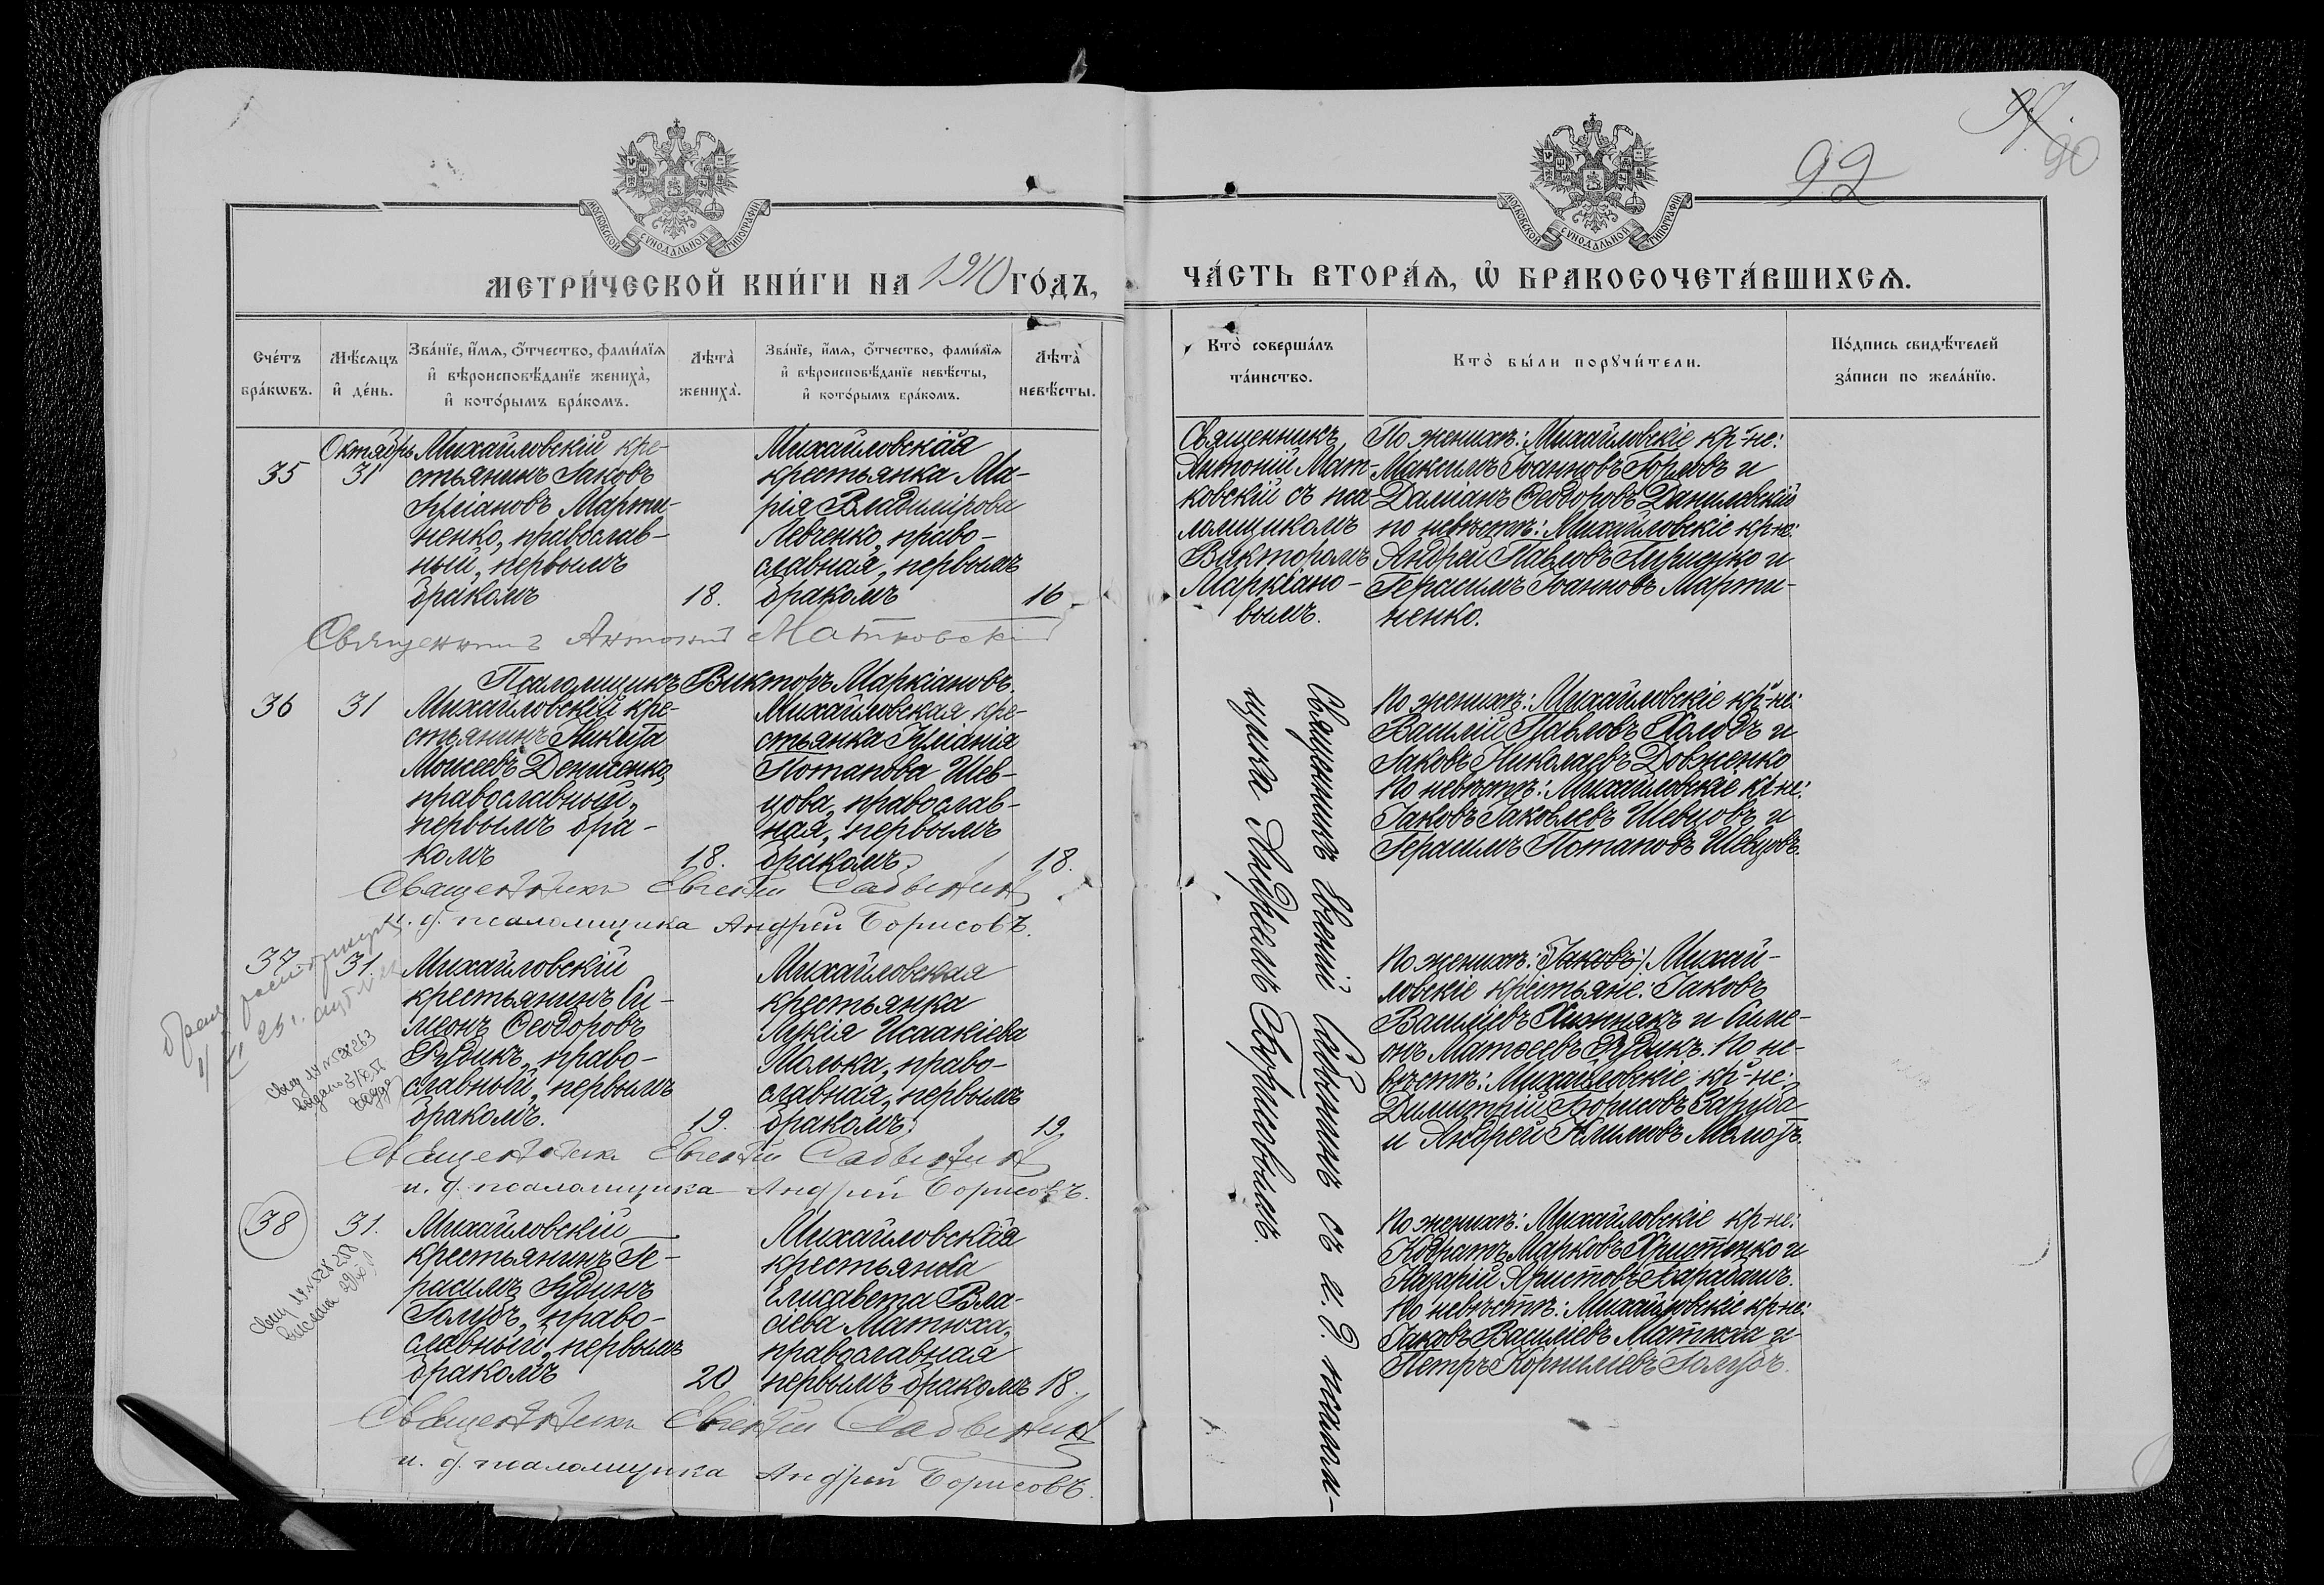 92
90
МОСКОВСКОЙ СѴНОДАЛЬНОЙ ТИПОГРАФІИ
МОСКОВСКОЙ СѴНОДАЛЬНОЙ ТИПОГРАФІИ
МЕТРИ́ЧЕСКОЙ КНИ́ГИ НА 1910 ГО́ДЪ,
ЧА́СТЬ ВТОРА́Ѧ, Ѡ БРАКОСОЧЕТА́ВШИХСѦ.
Сче́тъ бра́кѡвъ.
Мѣ́сѧцъ и҆ де́нь.
Зва́нїе, и҆́мѧ, ѻ҆́тчество, фами́лїѧ и҆ вѣроисповѣ́данїе жениха̀, и҆ кото́рымъ бра́комъ.
Лѣ́та̀ жениха̀.
Зва́нїе, и҆́мѧ, ѻ҆́тчество, фами́лїѧ и҆ вѣроисповѣ́данїе невѣ́сты, и҆ кото́рымъ бра́комъ.
Лѣ́та̀ невѣ́сты.
Кто̀ соверша́лъ та́инство.
Кто̀ бы́ли порꙋчи́тели.
По́дпись свидѣ́телей за́писи по жела́нїю.
35
Октябрь
31
Михайловскій кре-
стьянинъ Іаковъ
Марти-
ненко, православ-
ный, первымъ
бракомъ
18.
Михайловская
крестьянка Ма-
рія Владимірова
Левченко, право-
славная, первымъ
бракомъ
16
Священникъ
Антоній Мат-
ковскій съ пса-
ломщикомъ
Викторомъ
Маркіано-
вымъ.
По женихѣ: Михайловскіе кр-не:
Максимъ Іоанновъ Горловъ и
Даміанъ Ѳеодоровъ Даниловскій
по невѣстѣ: Михайловскіе кр-не:
Андрей Павловъ и
Герасимъ Іоанновъ Марти-
ненко.
Священникъ Антоній Матковскій
Псаломщикъ Викторъ Маркіановъ.
36
31
Михайловскій кре-
стьянинъ Никита
Моисеевъ Денисенко,
православный,
первымъ бра-
комъ
18.
Михайловская кре-
стьянка Іуліанія
Потапова Шев-
цова, православ-
ная, первымъ
бракомъ
18.
Священникъ Евгеній Савынинъ съ и. д. псалом-
щика Андреемъ Борисовымъ.
По женихѣ: Михайловскіе кр-не:
Василій Павловъ Холодъ и
Іаковъ Николаевъ Довженко
По невѣстѣ: Михайловскіе кр-не:
Іаковъ Іаковлевъ Шевцовъ и
Герасимъ Потаповъ Шевцовъ.
Священникъ Евгеній Савынин
и. д. псаломщика Андрей Борисовъ.
37
31.
Михайловскій
крестьянинъ Си-
меонъ Ѳеодоровъ
Рудикъ, право-
славный, первымъ
бракомъ.
19.
Михайловская
крестьянка
Лукія Исаакіева
Молька, право-
славная, первымъ
бракомъ
19
По женихѣ: Іаковъ Михай-
ловскіе крестьяне: Іаковъ
Василіевъ Хижнякъ и Симе-
онъ Матѳеевъ Рудикъ. По не-
вѣстѣ: Михайловскіе кр-не:
Димитрій Борисовъ Заруба
и Андрей Климовъ
Священникъ Евгеній Савынин
и. д. псаломщика Андрей Борисовъ.
38
31.
Михайловскій
крестьянинъ Ге-
расимъ Іудинъ
Голубъ, право-
славный, первымъ
бракомъ
20
Михайловская
крестьянка
Елисавета Вла-
сіева Матюха,
православная
первымъ бракомъ
18.
По женихѣ: Михайловскіе кр-не:
Кодратъ Марковъ Христенко и
Назарій Христовъ Карабашъ.
По невѣстѣ: Михайловскіе кр-не:
Іаковъ Василіевъ Матюха и
Петръ Корниліевъ Голубъ.
Священникъ Евгеній Савынин
и. д. псаломщика Андрей Борисовъ.